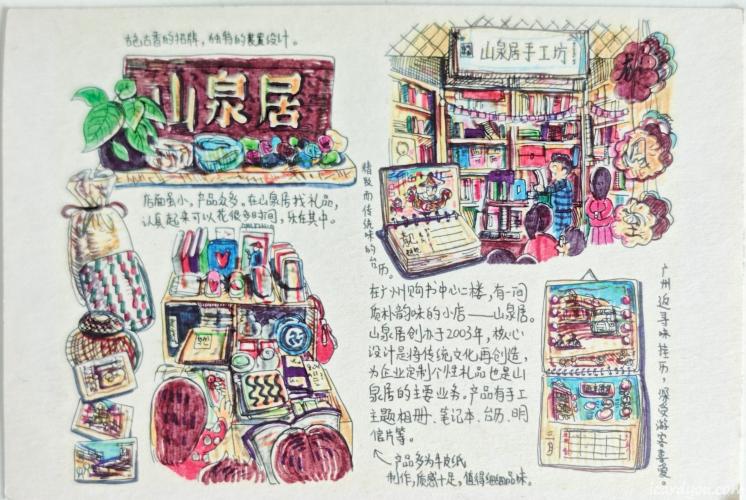 古色古香的招牌，独特的装置设计。
山泉居
店面虽小，产品众多。在山泉居找礼品，
认真起来可以花很多时间，乐在其中。
山泉居手工坊
精致而传统味的台历。
在广州购书中心二楼，有一间
质朴韵味的小店——山泉居。
山泉居创办于2003年，核心
设计是将传统文化再创造，
为企业定制个性礼品也是山
泉居的主要业务。产品有手工
主题相册、笔记本、台历、明
信片等。
产品多为牛皮纸
制作，质感十足，值得细细品味。
广州近寻味挂历，深受游客喜爱。